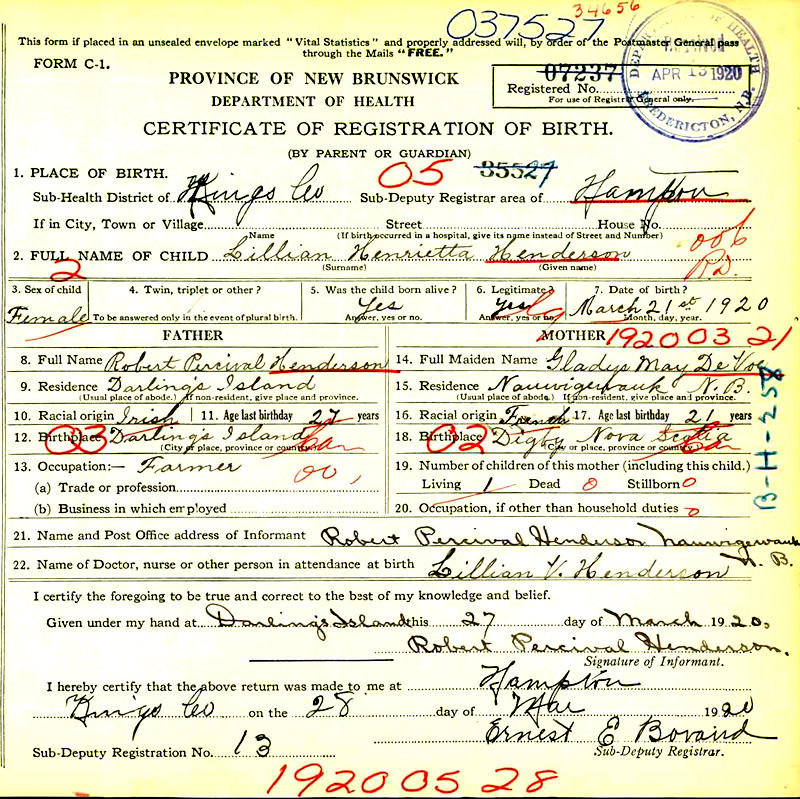 34656
037527
This form if placed in an unsealed envelope marked "Vital Statistics" and properly addressed will, by order of the Postmaster General pass
through the Mails "FREE."
FORM C-1.
PROVINCE OF NEW BRUNSWICK
DEPARTMENT OF HEALTH
07237
Registered No.
For use of Registrar General only.
DEPARTMENT OF HEALTH
Received
APR 13 1920
FREDERICTON, N.B.
CERTIFICATE OF REGISTRATION OF BIRTH.
(BY PARENT OR GUARDIAN)
1. PLACE OF BIRTH. 05 35527
Sub-Health District of Kings Co Sub-Deputy Registrar area of Hampton
If in City, Town or Village Street House No.
Name (If birth occurred in a hospital, give its name instead of Street and Number)
006
R.D.
2. FULL NAME OF CHILD Lillian Henrietta Henderson
(Surname) (Given name)
2
3. Sex of child 4. Twin, triplet or other? 5. Was the child born alive? 6. Legitimate? 7. Date of birth?
Female To be answered only in the event of plural birth. Yes Answer, yes or no. Yes Answer, yes or no. March 21st 1920 Month, day, year.
FATHER
8. Full Name Robert Percival Henderson
9. Residence Darlings Island
(Usual place of abode.) If non-resident, give place and province.
10. Racial origin Irish 11. Age last birthday 27 years
12. Birthplace Darlings Island
03
(City or place, province or country) Can
13. Occupation:— Farmer 00,
(a) Trade or profession
(b) Business in which employed
MOTHER 1920 03 21
14. Full Maiden Name Gladys May De Voe
15. Residence Nauwigewauk N.B.
(Usual place of abode.) If non-resident, give place and province.
16. Racial origin French 17. Age last birthday 21 years
18. Birthplace Digby Nova Scotia
02
(City or place, province or country) Can
19. Number of children of this mother (including this child.)
Living 1 Dead 0 Stillborn 0
20. Occupation, if other than household duties 0
B-H-258
21. Name and Post Office address of Informant Robert Percival Henderson Nauwigewauk
N. B.
22. Name of Doctor, nurse or other person in attendance at birth Lillian V. Henderson
I certify the foregoing to be true and correct to the best of my knowledge and belief.
Given under my hand at Darlings Island this 27 day of March 1920,
Robert Percival Henderson.
Signature of Informant.
I hereby certify that the above return was made to me at Hampton
Kings Co on the 28 day of Mar 1920
Ernest E Bovaird
Sub-Deputy Registration No. 13 Sub-Deputy Registrar.
1920 05 28